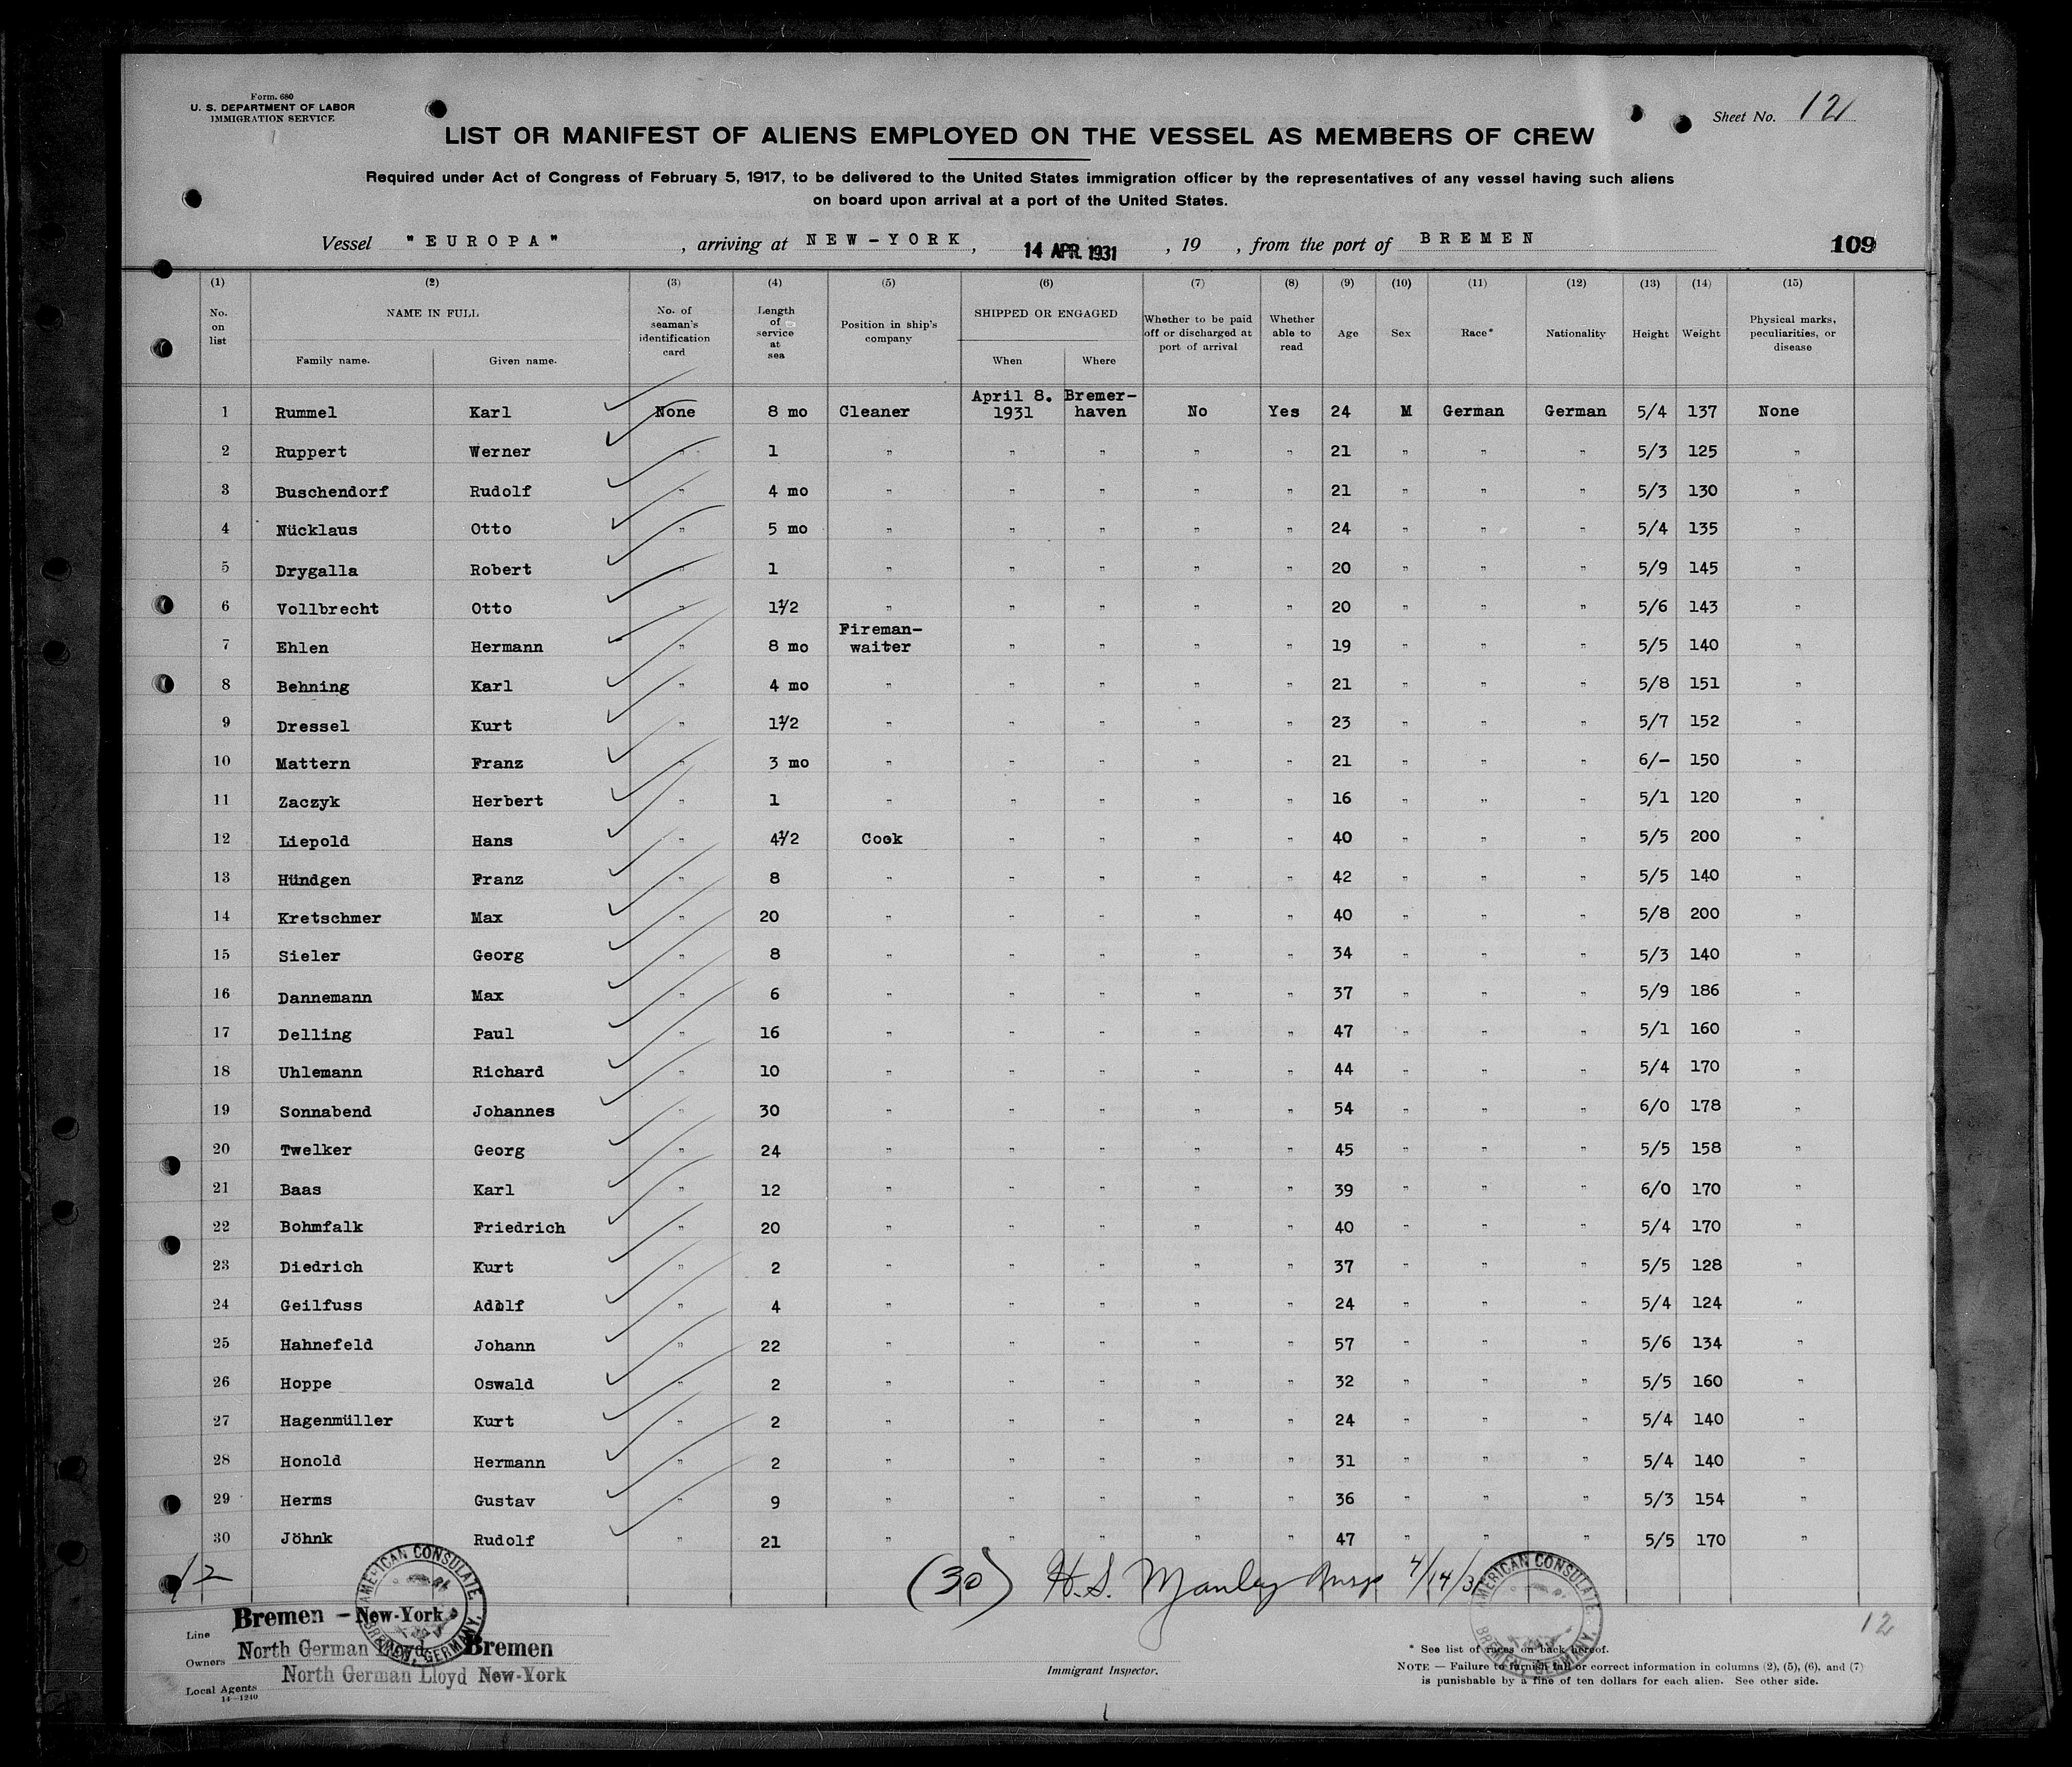 Form. 680
U. S. DEPARTMENT OF LABOR
IMMIGRATION SERVICE
Sheet No. 12
LIST OR MANIFEST OF ALIENS EMPLOYED ON THE VESSEL AS MEMBERS OF CREW
Required under Act of Congress of February 5, 1917, to be delivered to the United States immigration officer by the representatives of any vessel having such aliens
on board upon arrival at a port of the United States.
Vessel "EUROPA", arriving at NEW-YORK, 14 APR. 1931, 19 , from the port of BREMEN 109
(1) (2) (3) (4) (5) (6) (7) (8) (9) (10) (11) (12) (13) (14) (15)
No. on list NAME IN FULL Family name. Given name. No. of seaman's identification card Length of service at sea Position in ship's company SHIPPED OR ENGAGED When Where Whether to be paid off or discharged at port of arrival Whether able to read Age Sex Race* Nationality Height Weight Physical marks, peculiarities, or disease
1 Rummel Karl None 8 mo Cleaner April 8. 1931 Bremer-haven No Yes 24 M German German 5/4 137 None
2 Ruppert Werner " 1 " " " " " 21 " " " 5/3 125 "
3 Buschendorf Rudolf " 4 mo " " " " " 21 " " " 5/3 130 "
4 Nücklaus Otto " 5 mo " " " " " 24 " " " 5/4 135 "
5 Drygalla Robert " 1 " " " " " 20 " " " 5/9 145 "
6 Vollbrecht Otto " 1½ " " " " " 20 " " " 5/6 143 "
7 Ehlen Hermann " 8 mo Fireman-waiter " " " " 19 " " " 5/5 140 "
8 Behning Karl " 4 mo " " " " " 21 " " " 5/8 151 "
9 Dressel Kurt " 1½ " " " " " 23 " " " 5/7 152 "
10 Mattern Franz " 3 mo " " " " " 21 " " " 6/- 150 "
11 Zaczyk Herbert " 1 " " " " " 16 " " " 5/1 120 "
12 Liepold Hans " 4½ Cook " " " " 40 " " " 5/5 200 "
13 Hündgen Franz " 8 " " " " " 42 " " " 5/5 140 "
14 Kretschmer Max " 20 " " " " " 40 " " " 5/8 200 "
15 Sieler Georg " 8 " " " " " 34 " " " 5/3 140 "
16 Dannemann Max " 6 " " " " " 37 " " " 5/9 186 "
17 Delling Paul " 16 " " " " " 47 " " " 5/1 160 "
18 Uhlemann Richard " 10 " " " " " 44 " " " 5/4 170 "
19 Sonnabend Johannes " 30 " " " " " 54 " " " 6/0 178 "
20 Twelker Georg " 24 " " " " " 45 " " " 5/5 158 "
21 Baas Karl " 12 " " " " " 39 " " " 6/0 170 "
22 Bohmfalk Friedrich " 20 " " " " " 40 " " " 5/4 170 "
23 Diedrich Kurt " 2 " " " " " 37 " " " 5/5 128 "
24 Geilfuss Adolf " 4 " " " " " 24 " " " 5/4 124 "
25 Hahnefeld Johann " 22 " " " " " 57 " " " 5/6 134 "
26 Hoppe Oswald " 2 " " " " " 32 " " " 5/5 160 "
27 Hagenmüller Kurt " 2 " " " " " 24 " " " 5/4 140 "
28 Honold Hermann " 2 " " " " " 31 " " " 5/4 140 "
29 Herms Gustav " 9 " " " " " 36 " " " 5/3 154 "
30 Jöhnk Rudolf " 21 " " " " " 47 " " " 5/5 170 "
12 (30) H.S. Manley Insp 4/14/31
AMERICAN CONSULATE BREMEN, GERMANY.
AMERICAN CONSULATE BREMEN, GERMANY.
Line Bremen - New-York
Owners North German Lloyd, Bremen
Local Agents North German Lloyd New-York
14-1240
Immigrant Inspector.
12
* See list of races on back hereof.
NOTE — Failure to furnish full or correct information in columns (2), (5), (6), and (7)
is punishable by a fine of ten dollars for each alien. See other side.